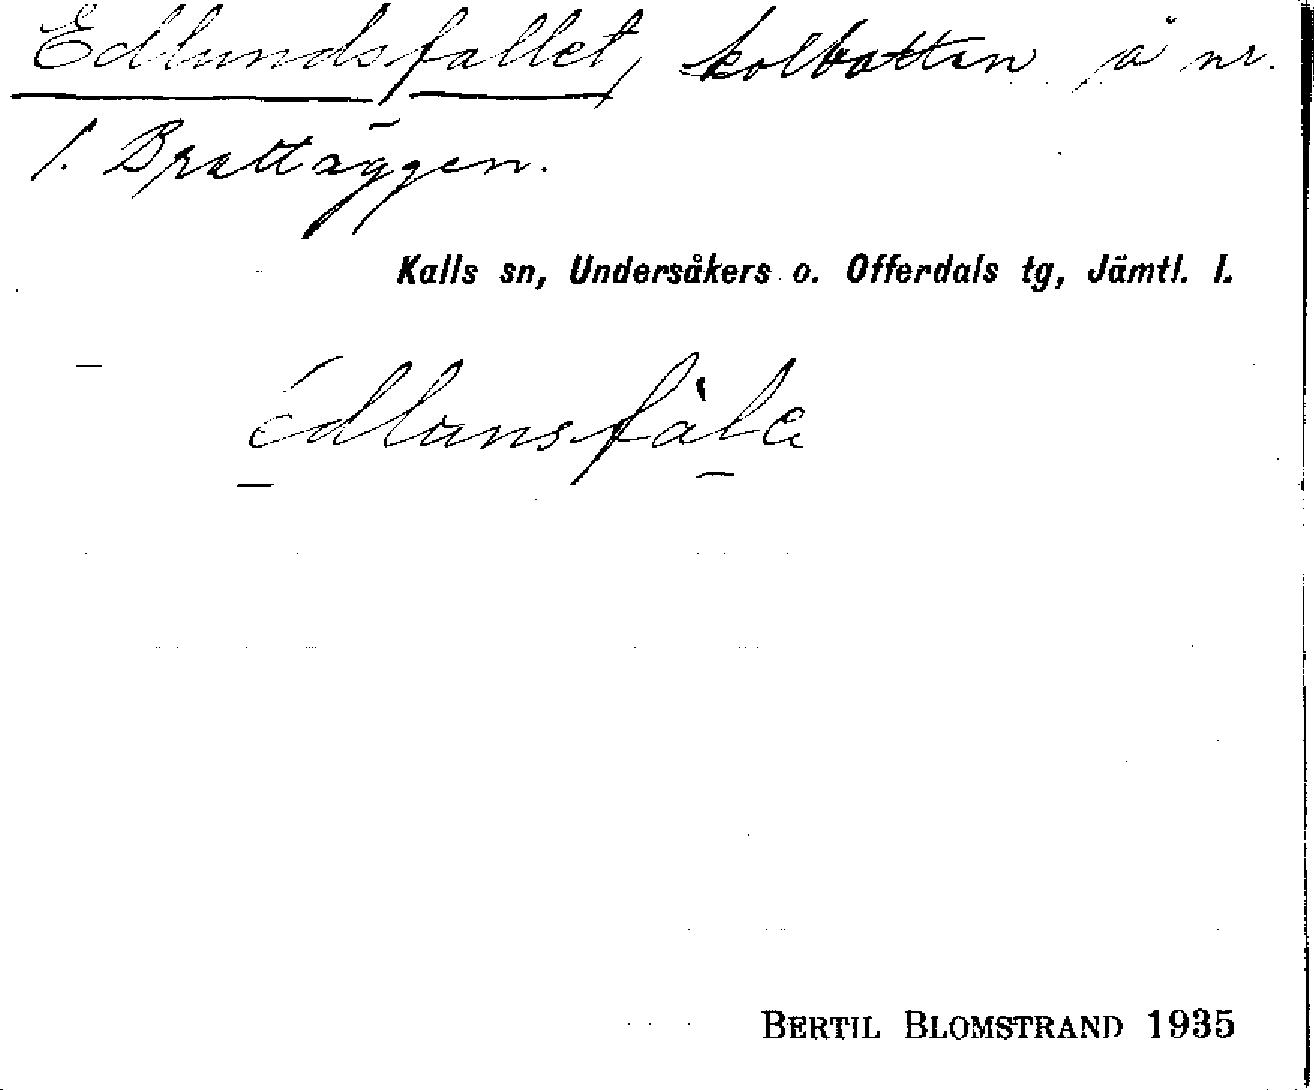 Edlundsfallet, kolbotten å nr.
1. Brattäggen.
Kalls sn, Undersåkers o. Offerdals tg, Jämtl. l.
BERTIL BLOMSTRAND 1935